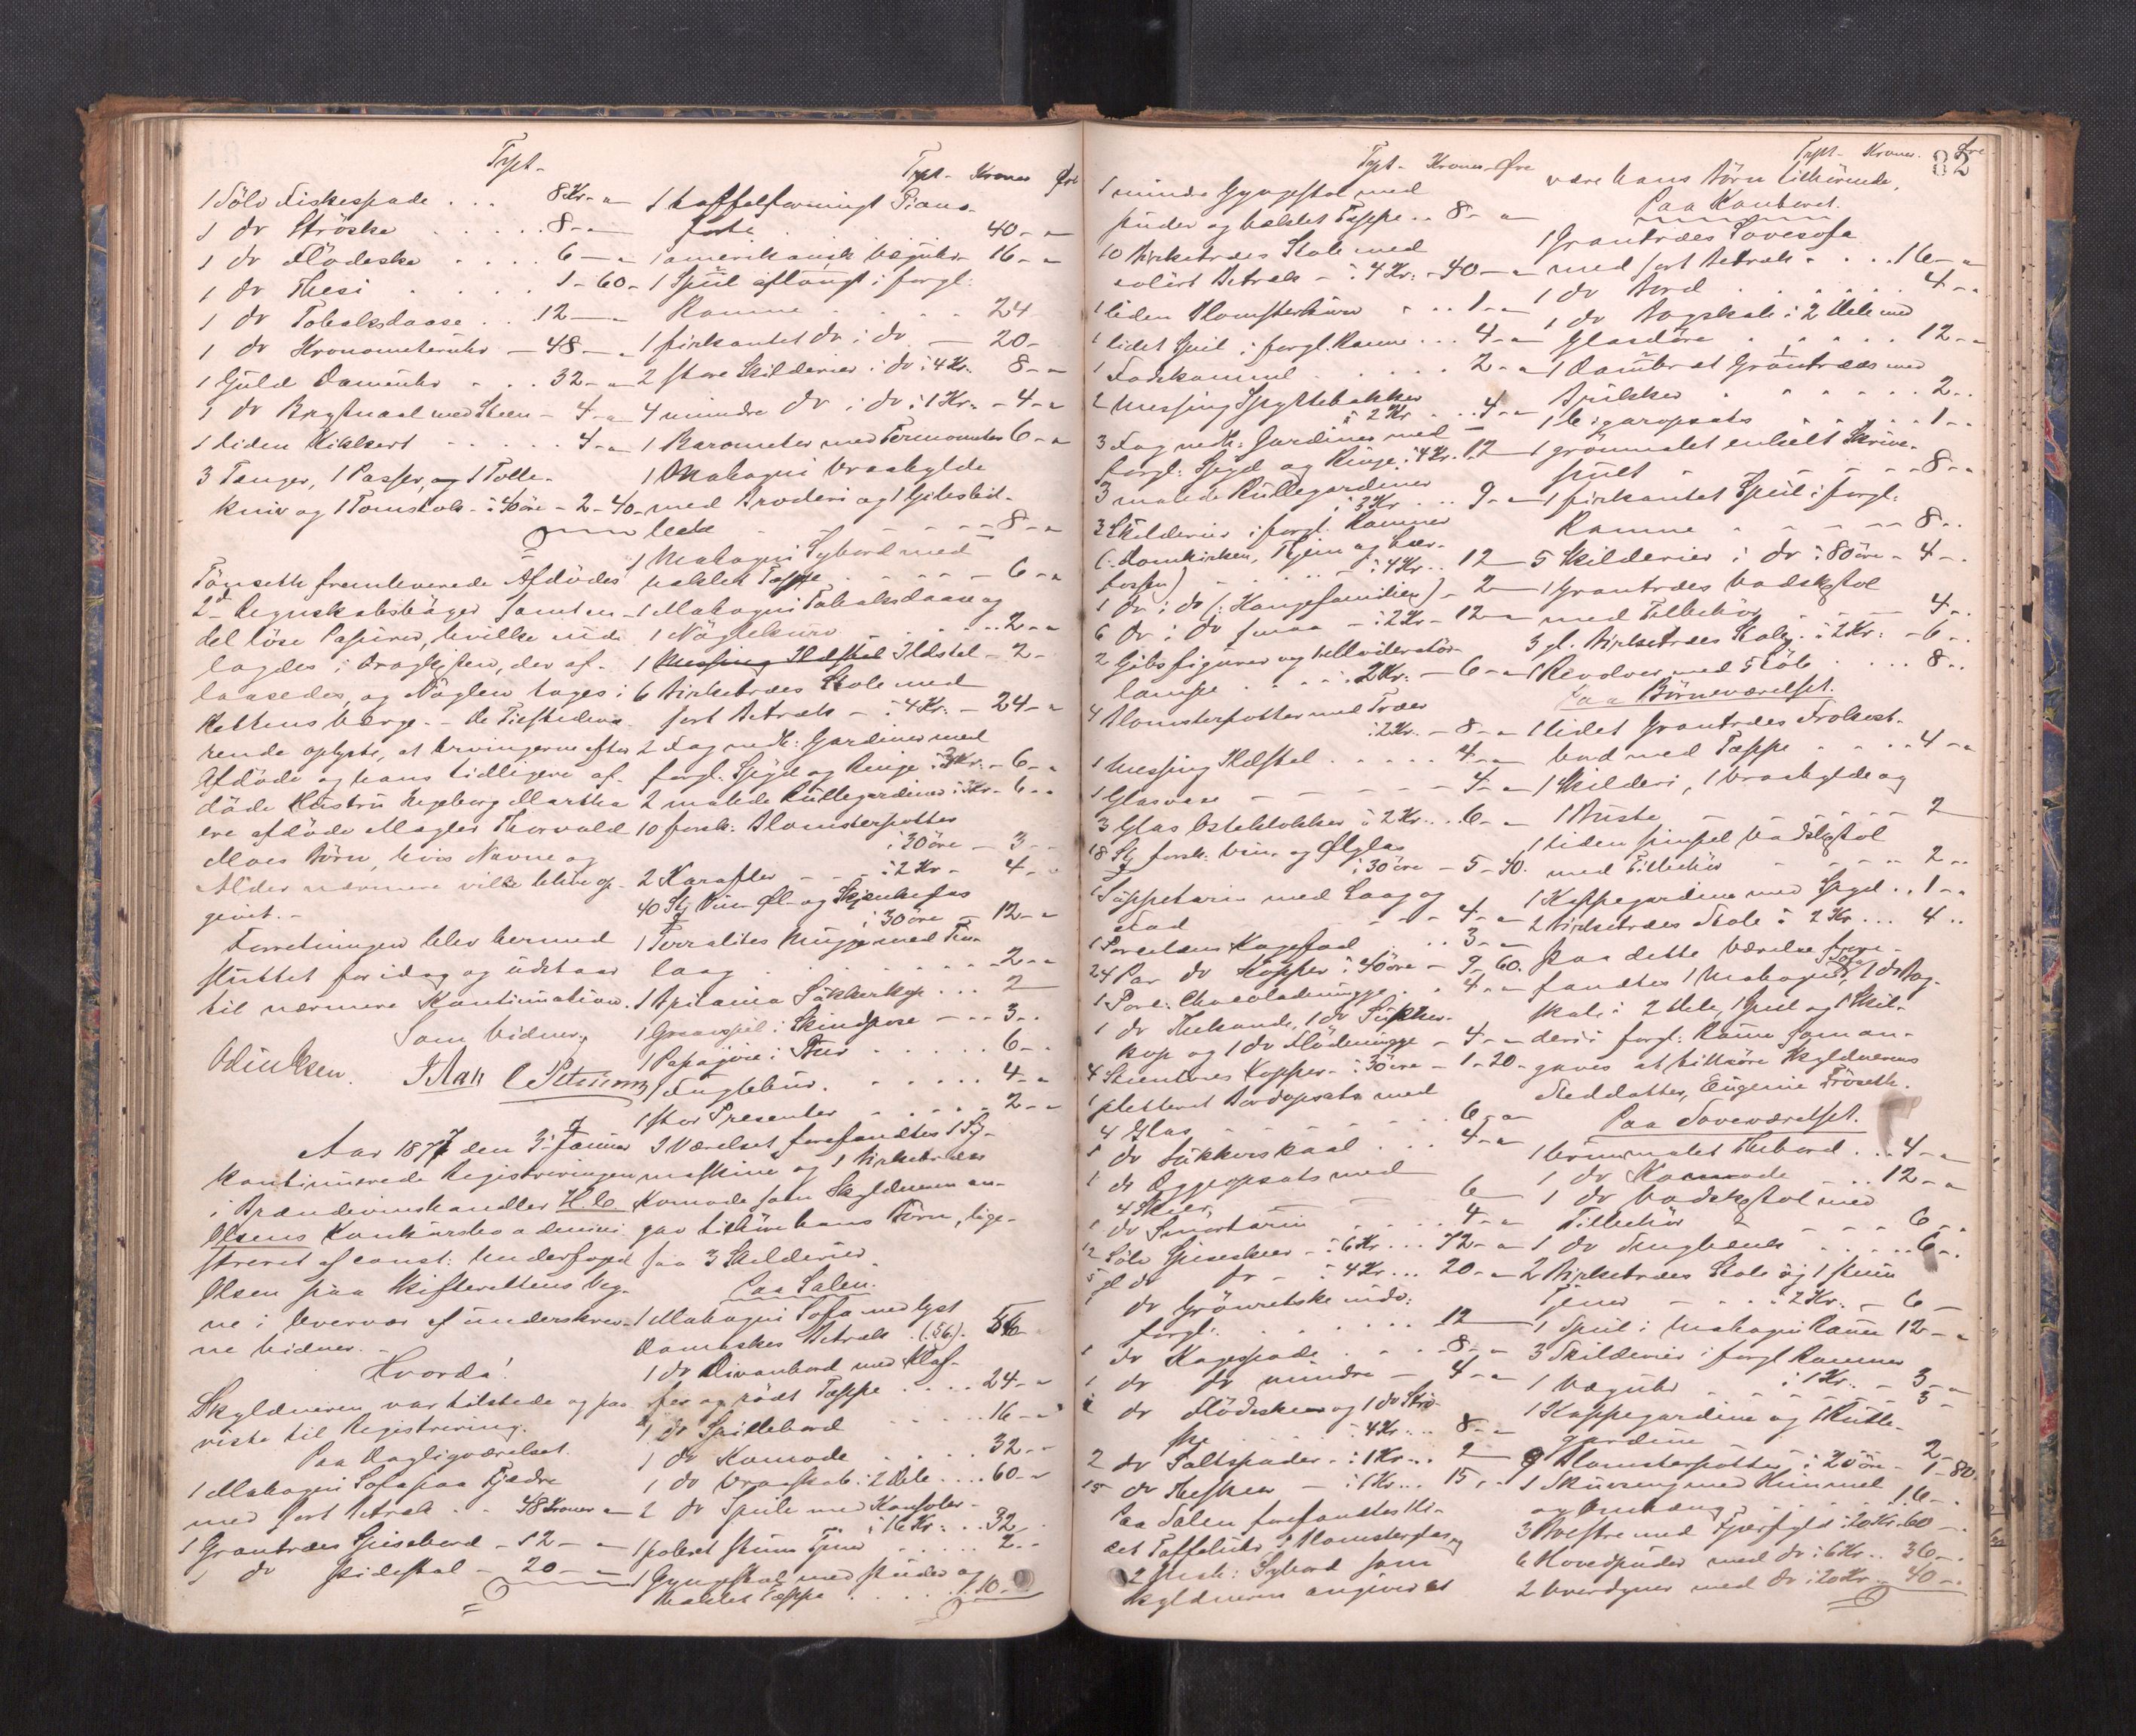 Txt-
1 Sölv Fiskespade . . . 8 Kr- "
1 do Ströske . . . . . 8 - "
1 do Flödeske . . . . 6 - "
1 do Thesi . . . . . 1 - 60 -
1 do Tobaksdaase . . 12 - "
1 do Kronometeruhr - 48 - "
1 Guld Dameuhr - . . 32 - "
1 do Brystnaal med Steen - 4 - "
1 liden Kikkert . . . . . 4 - "
3 Tænger, 1 Passer, og 1 Tolle-
kniv og 1 Tomstok - à 40 öre - 2 - 40 -
Tönseth fremleverede Afdödes
2de Regnskabsböger samt en
del löse Papirer, hvilke ind-
lagdes i Dragkisten, der af-
laasedes, og Nöglen toges i
Rettens Værge. - De Tilstedevæ-
rende oplyste, at Arvingerne efter
Afdöde og hans tidligere af-
döde Hustru Ingeborg Martha
ere afdöde Mægler Thorvald
Moes Börn, hvis Navne og
Alder nærmere ville blive op-
givet. -
Forretningen blev hermed
sluttet for idag og udstaar
til nærmere Kontinuation.
Som Vidner,
Aar 1877 den 3die Januar
kontinueredes Registreringen
i Brændevinshandler H. C.
Olsens Konkursbo admini-
streret af const: Underfoged
Olsen paa Skifterettens Veg-
ne i Overvær af underskrev-
ne Vidner. -
Hvorda!
Skyldneren var tilstede og paa-
viste til Registrering.
Paa Dagligværelset.
1 Mahogni Sofa paa Fjædre
med sort Betræk . . 48 Kroner "
1 Grantræes Spisebord - 12 - "
1 do Hvilestol - 20 - "
Txt- Kroner Öre
1 taffelformigt Piano-
forte . . . . . 40 - "
1 amerikansk Væguhr 16 - "
1 Speil aflangt i forgl:
Ramme . . . . . 24
1 firkantet do i do - 20 -
2 store Skilderier i do à 4 Kr. 8 - "
4 mindre do i do à 1 Kr. - 4 - "
1 Barometer med Termometer 6 - "
1 Mahogni Vraahylde
med Broderi og 1 Gibsbil-
lede - - - - - 8 - "
1 Mahogni Sybord med
hæklet Tæppe . . . . 6 - "
1 Mahogni Tobaksdaase og
1 Nöglekurv . . . . . 2 - "
1 Messing Ildstel Ildstel - 2 -
6 Birketræes Stole med
sort Betræk - à 4 Kr. - 24 - "
2 Fag neth: Gardiner med
forgl: Spyd og Ringe à 3 Kr: - 6 - "
2 malede Rullegardiner à 3 Kr - 6 - "
10 forsk: Blomsterpotter
à 30 öre - 3 - -
2 Karafler - - - à 2 Kr - 4 - "
40 Stk Vin- Öl- og Skjænkeglas
à 30 öre - 12 - "
1 Terralites Mugge med Tin-
laag . . . . . . . 2 - "
1 Britania Sukkerkop . . . 2
1 Gevær i Skindpose - - - 3 - -
1 Papagöie i Buur . . . . . 6 - -
1 Fuglebuur. . . . . . 4 - "
1 stor Presenter . . . . . 2 - "
I Værelset forefandtes 1 Sy-
maskine og 1 Birketræes
Komode som Skyldneren an-
gav tilhöre hans Börn, lige-
saa 3 Skilderier
Paa Salen.
1 Mahogni Sofa med lyst
Damaskes Betræk (:56:) 56
1 do Divanbord med Klaf-
fer og rödt Tæppe . . . . 24 - "
1 do Spillebord . . . . . 16 - "
1 do Komode . . . . . 32 - -
1 do Vraaskab i 2 Dele . . . 60 - "
2 do Speile med Konsoler -
à 16 Kr: . . 32
1 poleret stum Tjener . . . . . 2 - -
1 Gyngestol med Puder og
hæklet Tæppe . . . . 10 - -
Txt- Kroner Öre
1 mindre Gyngestol med
Puder og hæklet Tæppe . . 8 - "
10 Birketræes Stole med
colört Betræk - à 4 Kr: - 40 - "
1 liden Blomsterkurv . . . 1 - "
1 lidet Speil i forgl: Ramme . . . 4 - "
1 Fodskammel . . . . . . 2 - "
2 Messing Spyttebakker
à 2 Kr . . 4 - "
3 Fag neth: Gardiner med
forgl: Spyd og Ringe à 4 Kr. 12
3 malede Rullegardiner
à 3 Kr . . . 9 - "
3 Skilderier i forgl: Rammer
(: Domkirken, Thjem og Leer-
fossen) . . . . . à 4 Kr. . 12
1 do i do (: Kongefamilien) - 2
6 do i do smaa - à 2 Kr - 12 - "
2 Gibsfigurer og 1 Moderatör-
lampe . . . . . à 2 Kr: - 6 - "
4 Blomsterpotter med Træer
à 2 Kr. - 8 - "
1 Messing Ildstel . . . . . 4 - "
1 Glasvase - - - - - 4 - "
3 Glas Osteklokker à 2 Kr . . . 6 - "
18 Stk forsk: Vin- og Ölglas
à 30 öre - 5 - 40.
1 Suppeterin med Laag og
Fad . . . . . . 4 - "
1 Porcelæns Kagefad . . . 3 - "
24 Par do Kopper à 40 öre - 9 - 60.
1 Porc: Chocolademugge . . 4 - "
1 do Thekande, 1 do Sukker-
kop og 1 do Flödemugge - 4 - "
4 Steentöies Kopper - à 30 öre - 1 - 20 -
1 pletteret Bordopsats med
4 Glas . . . . . . . 6 - "
1 do Sukkerskaal . . . 4 - "
1 do Æggeopsats med
4 Skeer, . . . . . 6
1 do Smörterin . . . . . 4 - "
12 Sölv Spiseskeer - à 6 Kr . . . 72 - "
5 gl do do - à 4 Kr . . . 20 - "
1 do Grönretske indv:
forgl: . . . . . 12
1 do Kagespade . . . . 8 - "
1 do do mindre - 4 - "
1 do Flödeske og 1 do Strö-
ske . . . . . à 4 Kr . . . 8 - "
2 do Saltspader - à 1 Kr . . . 2
15 do Theskeer - à 1 Kr . . . 15 - "
Paa Salen forefandtes li-
det Taffeluhr, 2 Blomsterglas og
2 Sybord som
Skyldneren angiver at
Txt- Kroner. Öre
32
være hans Börn tilhörende.
Paa Kontoret.
1 Grantræes Sovesofa
med sort Betræk . . . . 16 - "
1 do Bord . . . . . . . 4 - "
1 do Bogskab i 2 Dele med
Glasdöre . . . . . . 12 - "
1 Dambræt Grantræes med
Brikker . . . . . . . 2 - -
1 Cigaropsats . . . . . . 1 - -
1 grönmalet enkelt Skrive-
pult - - - - - 8 - "
1 firkantet Speil i forgl:
Ramme - - - - - 8 - -
5 Skilderier i do à 80 öre - 4 - -
1 Grantræes Vadskestol
med Tilbehör . . . . . 4 - -
3 gl. Birketræes Stole. à 2 Kr: - 6 - -
1 Revolver med 5 Löb . . . . 8 - -
Paa Börneværelset.
1 lidet Grantræes Frokost-
bord med Tæppe . . . . 4 - "
1 Skilderi, 1 Vraahylde og
1 Buste - - - - - - 2
1 liden simpel Vadskestol
med Tilbehör . . . . . 2 - -
1 Kappegardine med Spyd . . 1 - -
2 Birketræes Stole à 2 Kr . . . 4 - -
Paa dette Værelse fore-
fandtes 1 Mahogni Sofa, 1 do Bog-
skab i 2 Dele, 1 Speil og 1 Skil-
deri i forgl: Ramme som an-
gaves at tilhöre Skyldnerens
Steddatter, Eugenie Fröseth.
Paa Soveværelset.
1 brunmalet Thebord . . . 4 - "
1 do Komode . . . . 12 - "
1 do Vadskestol med
Tilbehör - - - - 6 - -
1 do Sengbænk . . . . . . 6 - -
2 Birketræes Stole og 1 stum
Tjener - - - à 2 Kr. - 6 -
1 Speil i Mahogni Ramme 12 - "
3 Skilderier i forgl Rammer
à 1 Kr. - 3 - "
1 Væguhr - - - - - - 3 -
1 Kappegardine og 1 Rulle-
gardin . . . . . . . 2 -
9 Blomsterpotter à 20 öre - 1 - 80.
1 Skuvseng med Himmel
og Omhæng . . . . . . 16 - -
3 Bolstre med Fjærfyld à 20 Kr - 60 - -
6 Hovedpuder med do à 6 Kr. . 36 - -
2 Overdyner med do à 20 Kr . . 40 - -